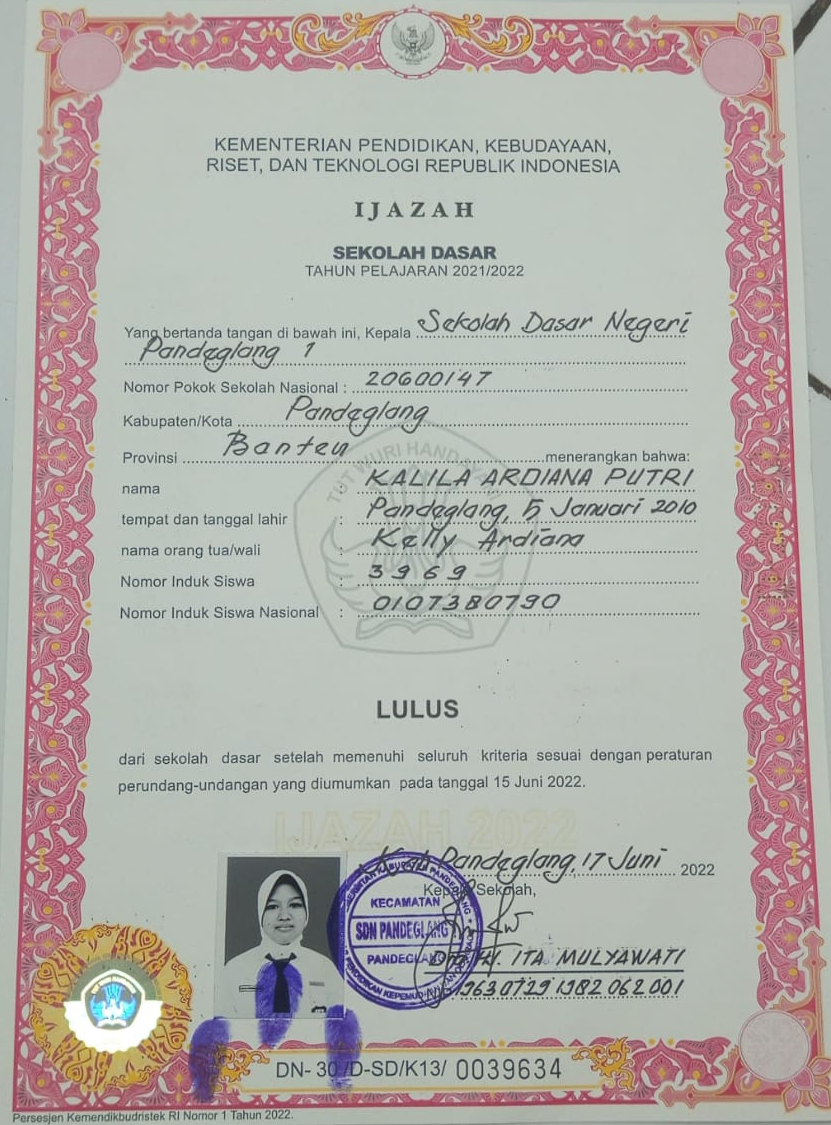 KEMENTERIAN PENDIDIKAN, KEBUDAYAAN,
RISET, DAN TEKNOLOGI REPUBLIK INDONESIA
IJAZAH
SEKOLAH DASAR
TAHUN PELAJARAN 2021/2022
Yang bertanda tangan di bawah ini, Kepala Sekolah Dasar Negeri
Pandeglang 1
Nomor Pokok Sekolah Nasional : 20600147
Kabupaten/Kota Pandeglang
Provinsi Banten menerangkan bahwa:
TUT WURI HANDAYANI
nama : KALILA ARDIANA PUTRI
tempat dan tanggal lahir : Pandeglang, 5 Januari 2010
nama orang tua/wali : Kelly Ardiana
Nomor Induk Siswa : 3969
Nomor Induk Siswa Nasional : 0107380790
LULUS
dari sekolah dasar setelah memenuhi seluruh kriteria sesuai dengan peraturan
perundang-undangan yang diumumkan pada tanggal 15 Juni 2022.
IJAZAH 2022
Kab Pandeglang, 17 Juni 2022
Kepala Sekolah,
KECAMATAN
SDN PANDEGLANG 1
PANDEGLANG
Hj. ITA MULYAWATI
19630729 198206 2001
DN- 30 /D-SD/K13/ 0039634
Persesjen Kemendikbudristek RI Nomor 1 Tahun 2022.